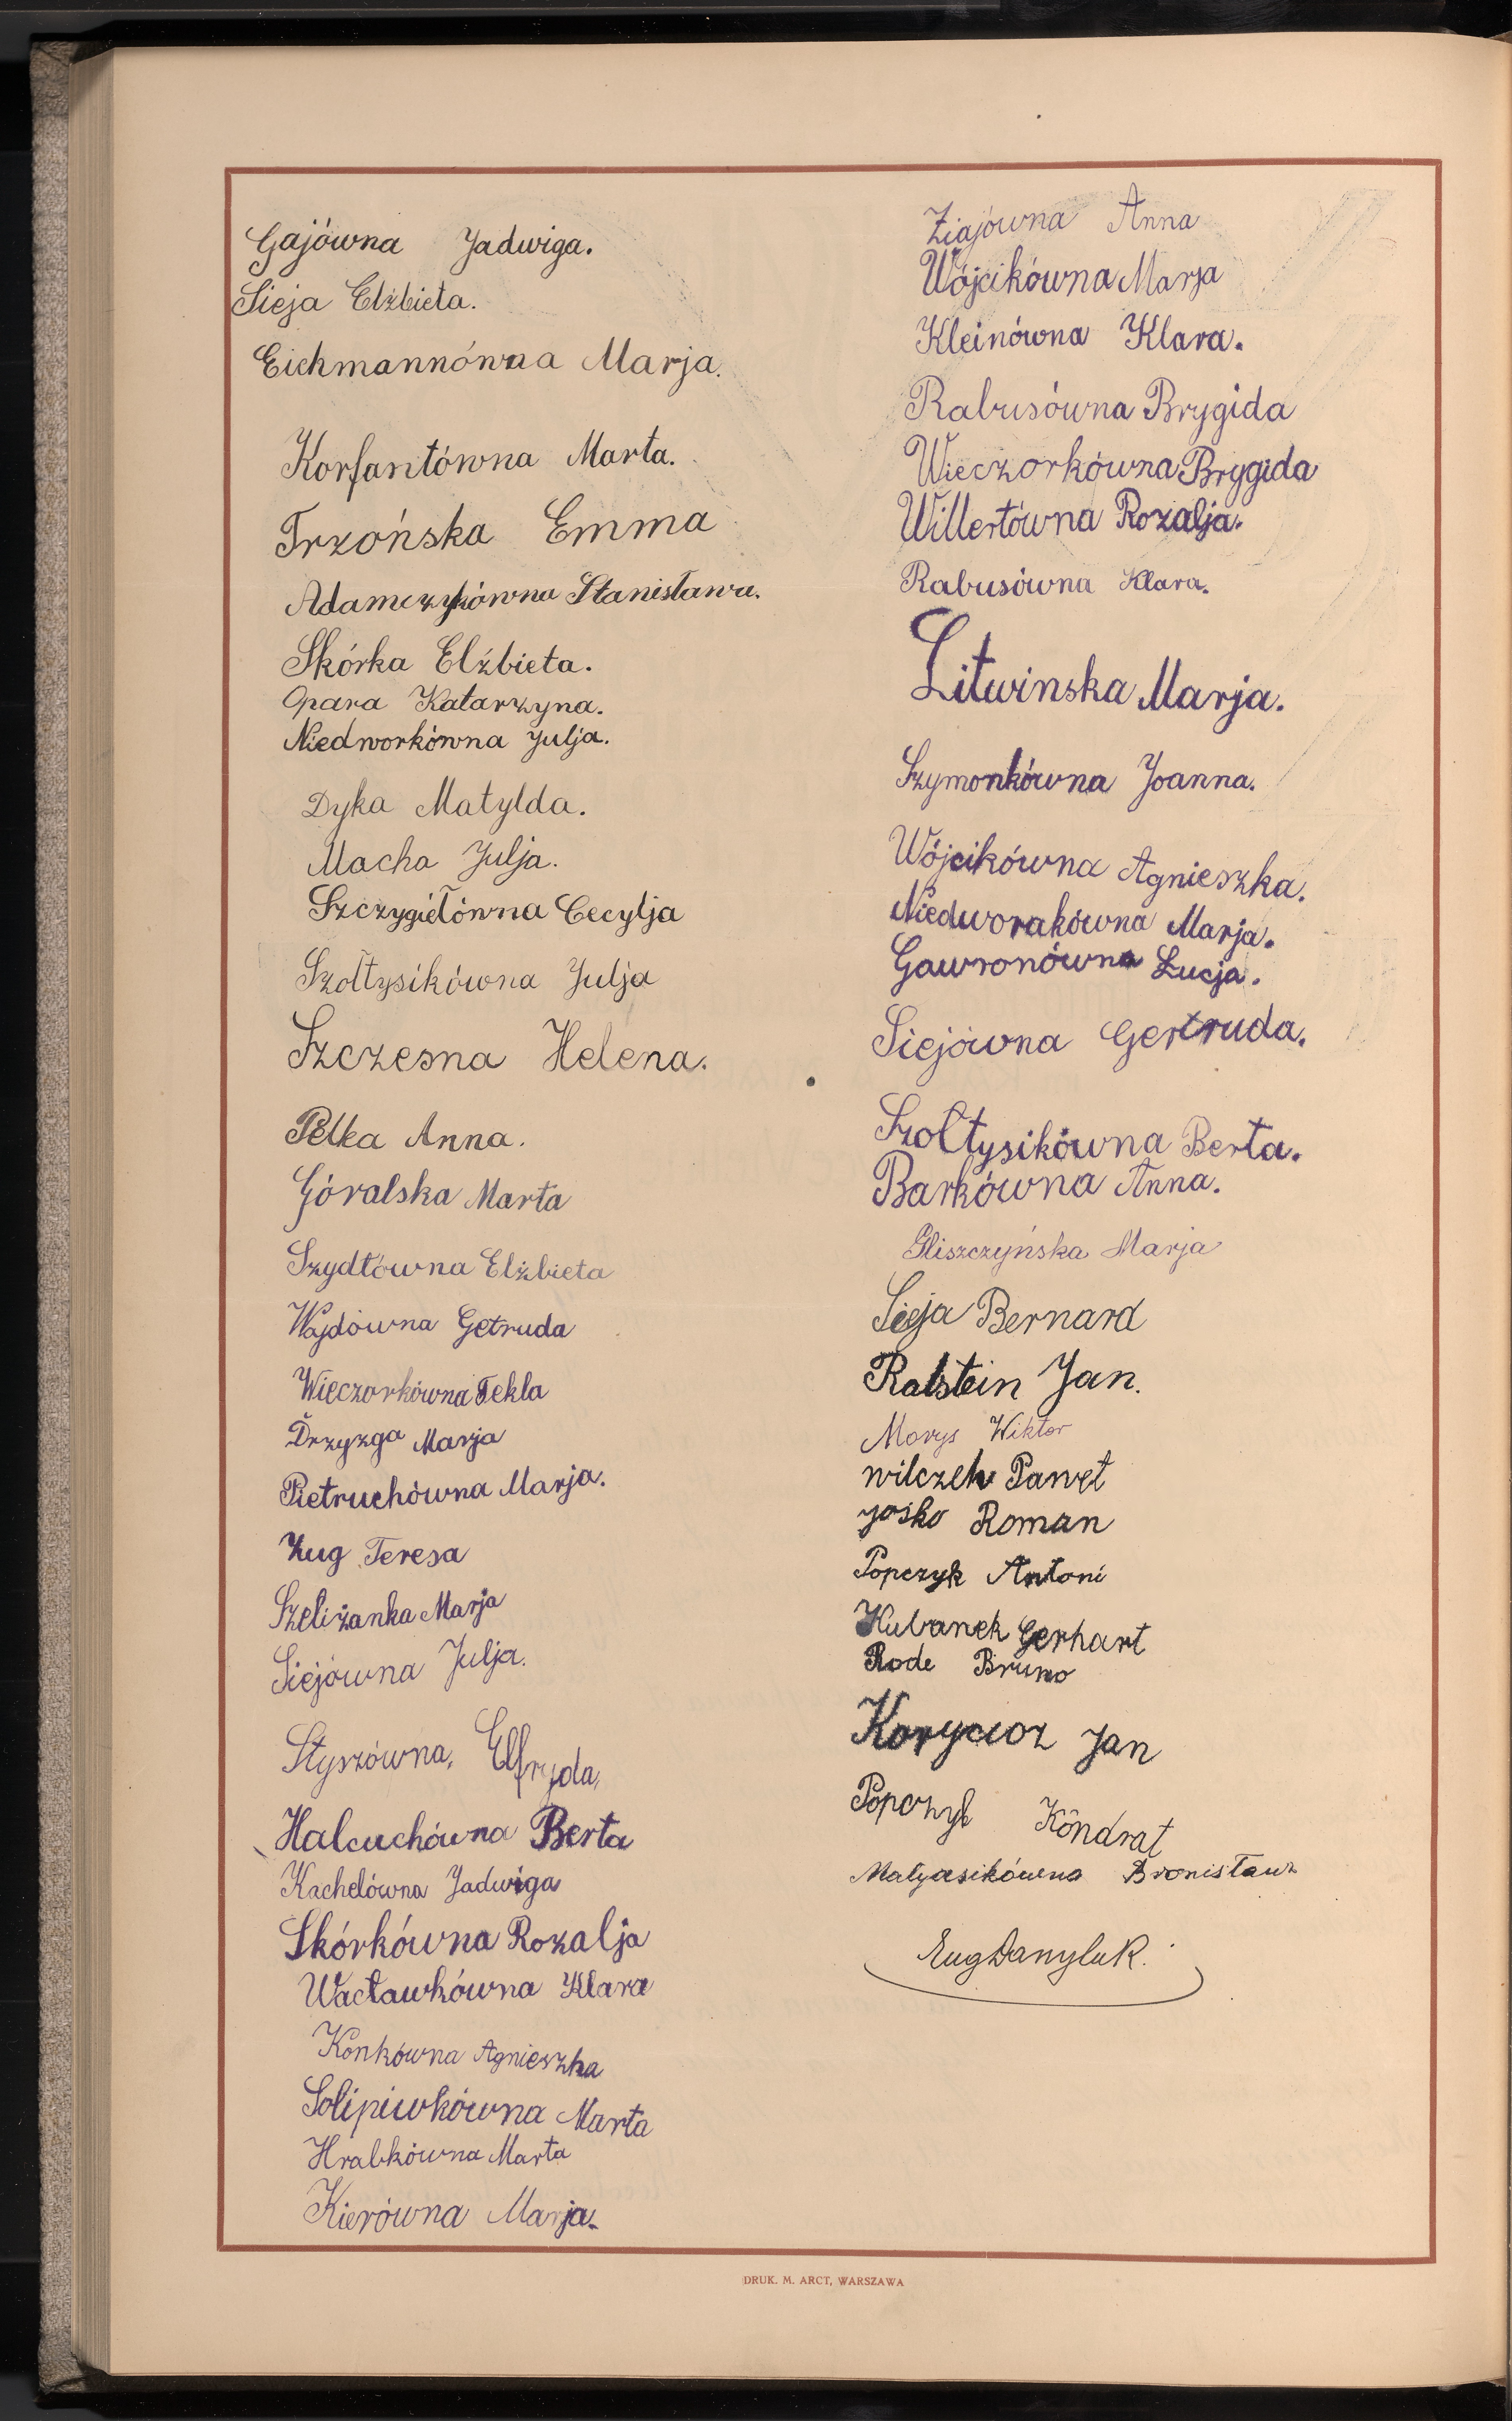 Gajówna Jadwiga.
Sieja Elżbieta.
Eichmannówna Marja.
Korfantówna Marta.
Trzońska Emma
Adamczykówna Stanisława.
Skórka Elżbieta.
Opara Katarzyna.
Niedworkówna Julja.
Dyka Matylda.
Macha Julja.
Szczygiełówna Cecylja
Szołtysikówna Julja
Szczesna Helena.
Pełka Anna.
Góralska Marta
Szydłówna Elżbieta
Wajdówna Getruda
Wieczorkówna Tekla
Drzyzga Marja
Pietruchówna Marja.
Żug Teresa
Szeliżanka Marja
Siejówna Julja.
Styszówna, Elfryda,
Halcuchówna Berta
Kachelówna Jadwiga
Skórkówna Rozalja
Wacławkówna Klara
Konkówna Agnieszka
Solipiwkówna Marta
Hrabkówna Marta
Kierówna Marja.
Ziajówna Anna
Wójcikówna Marja
Kleinówna Klara.
Rabusówna Brygida
Wieczorkówna Brygida
Willertówna Rozalja.
Rabusówna Klara.
Litwinska Marja.
Szymonkówna Joanna.
Wójcikówna Agnieszka.
Niedworakówna Marja.
Gawronówna Łucja.
Siejówna Gertruda.
Szołtysikówna Berta.
Barkówna Anna.
Gliszczyńska Marja
Sieja Bernard
Ralstein Jan.
Morys Wiktor
wilczek Paweł
Jośko Roman
Popczyk Antoni
Kubanek Gerhart
Rode Bruno
Koryciorz Jan
Popczyk Kondrat
Małyasikówna Bronisława
Eug Danyluk.
DRUK. M. ARCT, WARSZAWA